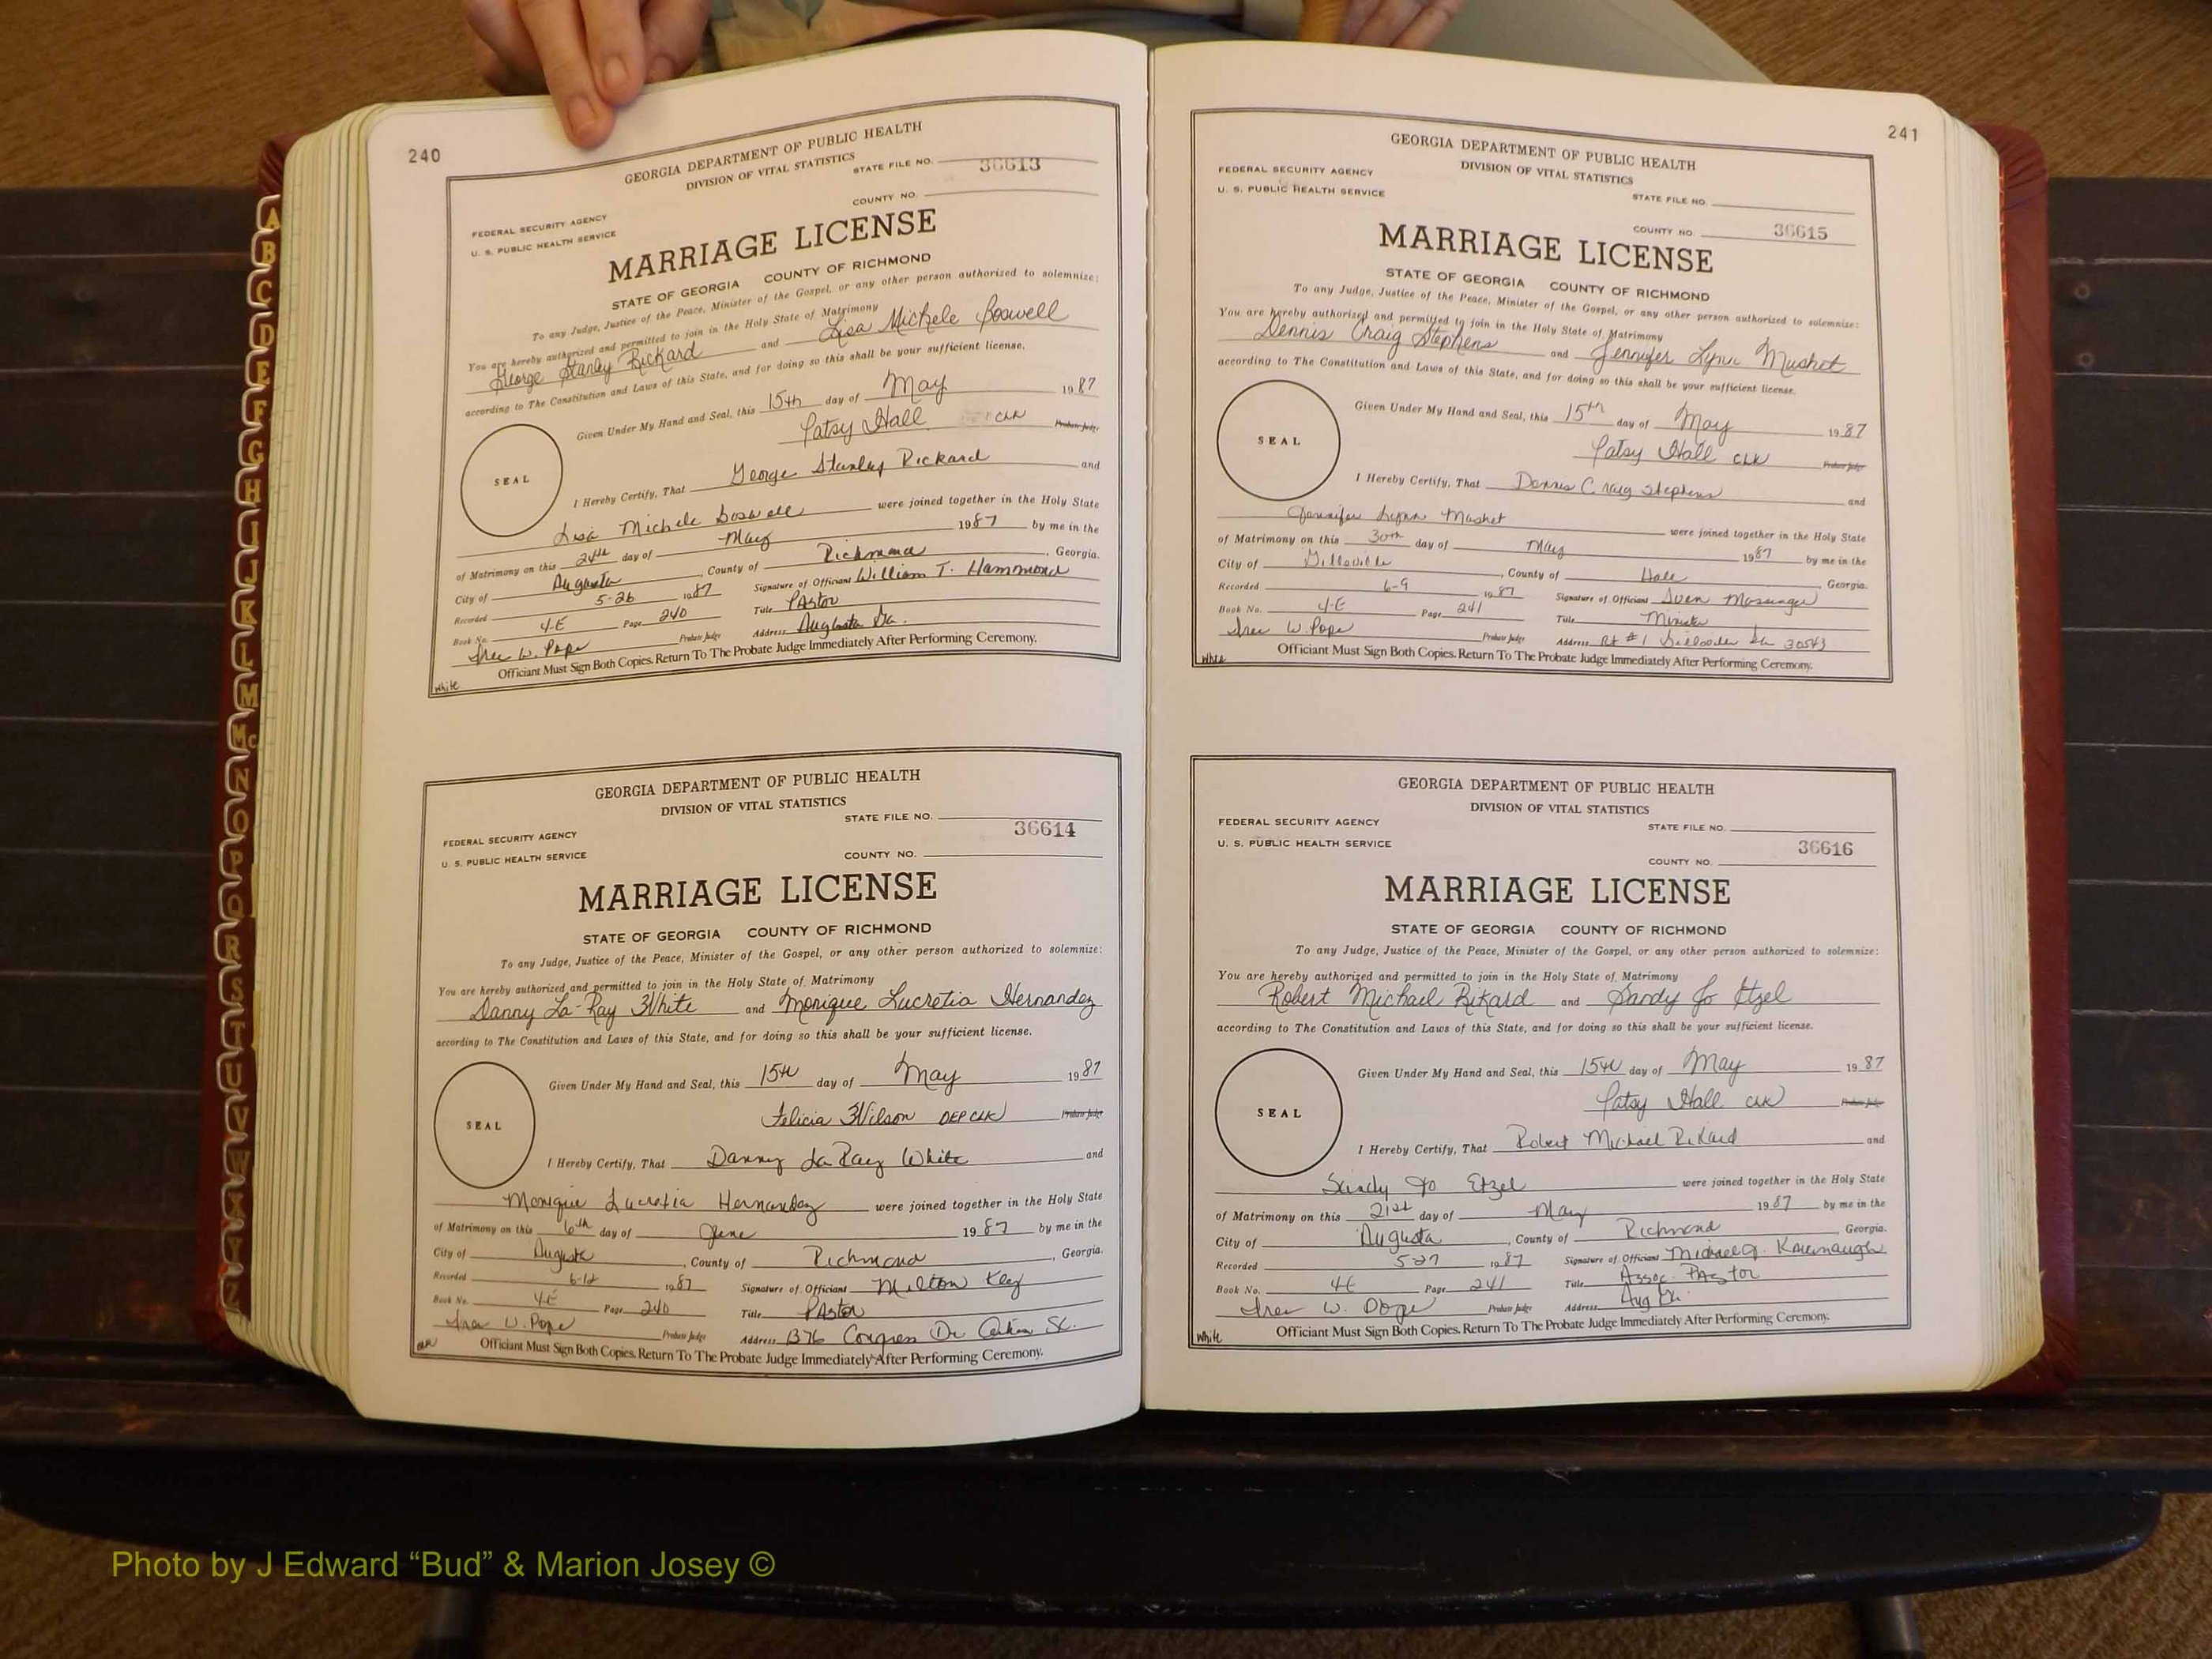 240
GEORGIA DEPARTMENT OF PUBLIC HEALTH
DIVISION OF VITAL STATISTICS
STATE FILE NO. 36613
COUNTY NO.
FEDERAL SECURITY AGENCY
U. S. PUBLIC HEALTH SERVICE
MARRIAGE LICENSE
STATE OF GEORGIA COUNTY OF RICHMOND
To any Judge, Justice of the Peace, Minister of the Gospel, or any other person authorized to solemnize:
You are hereby authorized and permitted to join in the Holy State of Matrimony
George Stanley Rickard and Lisa Michele Boswell
according to The Constitution and Laws of this State, and for doing so this shall be your sufficient license.
Given Under My Hand and Seal, this 15th day of May 1987
Patsy Hall CLK Probate Judge
SEAL
I Hereby Certify, That George Stanley Rickard and
Lisa Michele Boswell were joined together in the Holy State
of Matrimony on this 24th day of May 1987 by me in the
City of Augusta, County of Richmond, Georgia.
Recorded 5-26 1987 Signature of Officiant William T. Hammond
Book No. 4-E Page 240 Title Pastor
W. Pope Probate Judge Address Augusta Ga.
Officiant Must Sign Both Copies. Return To The Probate Judge Immediately After Performing Ceremony.
White
GEORGIA DEPARTMENT OF PUBLIC HEALTH
DIVISION OF VITAL STATISTICS
STATE FILE NO.
36614
FEDERAL SECURITY AGENCY
U. S. PUBLIC HEALTH SERVICE
COUNTY NO.
MARRIAGE LICENSE
STATE OF GEORGIA COUNTY OF RICHMOND
To any Judge, Justice of the Peace, Minister of the Gospel, or any other person authorized to solemnize:
You are hereby authorized and permitted to join in the Holy State of Matrimony
Danny La-Ray White and Monique Lucretia Hernandez
according to The Constitution and Laws of this State, and for doing so this shall be your sufficient license.
Given Under My Hand and Seal, this 15th day of May 1987
Felicia Wilson DEP CLK Probate Judge
SEAL
I Hereby Certify, That Danny La Ray White and
Monique Lucretia Hernandez were joined together in the Holy State
of Matrimony on this 6th day of June 1987 by me in the
City of Augusta, County of Richmond, Georgia.
Recorded 6-12 1987 Signature of Officiant Milton Key
Book No. 4E Page 240 Title Pastor
W. Pope Probate Judge Address 1376 Congress Dr
Officiant Must Sign Both Copies. Return To The Probate Judge Immediately After Performing Ceremony.
241
GEORGIA DEPARTMENT OF PUBLIC HEALTH
DIVISION OF VITAL STATISTICS
FEDERAL SECURITY AGENCY
U. S. PUBLIC HEALTH SERVICE
STATE FILE NO.
COUNTY NO. 36615
MARRIAGE LICENSE
STATE OF GEORGIA COUNTY OF RICHMOND
To any Judge, Justice of the Peace, Minister of the Gospel, or any other person authorized to solemnize:
You are hereby authorized and permitted to join in the Holy State of Matrimony
Dennis Craig Stephens and Jennifer Lynn Mushet
according to The Constitution and Laws of this State, and for doing so this shall be your sufficient license.
Given Under My Hand and Seal, this 15th day of May 1987
Patsy Hall CLK Probate Judge
SEAL
I Hereby Certify, That Dennis Craig Stephens and
Jennifer Lynn Mushet were joined together in the Holy State
of Matrimony on this 30th day of May 1987 by me in the
City of Gillsville, County of Hall, Georgia.
Recorded 6-9 1987 Signature of Officiant
Book No. 4-E Page 241 Title Minister
W. Pope Probate Judge Address Rt #1 Ga 30543
Officiant Must Sign Both Copies. Return To The Probate Judge Immediately After Performing Ceremony.
White
GEORGIA DEPARTMENT OF PUBLIC HEALTH
DIVISION OF VITAL STATISTICS
FEDERAL SECURITY AGENCY
STATE FILE NO.
U. S. PUBLIC HEALTH SERVICE
36616
COUNTY NO.
MARRIAGE LICENSE
STATE OF GEORGIA COUNTY OF RICHMOND
To any Judge, Justice of the Peace, Minister of the Gospel, or any other person authorized to solemnize:
You are hereby authorized and permitted to join in the Holy State of Matrimony
Robert Michael Rikard and Sandy Jo Etzel
according to The Constitution and Laws of this State, and for doing so this shall be your sufficient license.
Given Under My Hand and Seal, this 15th day of May 1987
Patsy Hall CLK Probate Judge
SEAL
I Hereby Certify, That Robert Michael Rikard and
Sandy Jo Etzel were joined together in the Holy State
of Matrimony on this 21st day of May 1987 by me in the
City of Augusta, County of Richmond, Georgia.
Recorded 5-27 1987 Signature of Officiant Michael J. Kavanaugh
Book No. 4E Page 241 Title Assoc. Pastor
W. Pope Probate Judge Address Aug Ga.
Officiant Must Sign Both Copies. Return To The Probate Judge Immediately After Performing Ceremony.
White
A
B
C
D
E
F
G
H
I
J
K
L
M
Mc
N
O
P
Q
R
S
T
U
V
W
X
Y
Z
Photo by J Edward “Bud” & Marion Josey ©